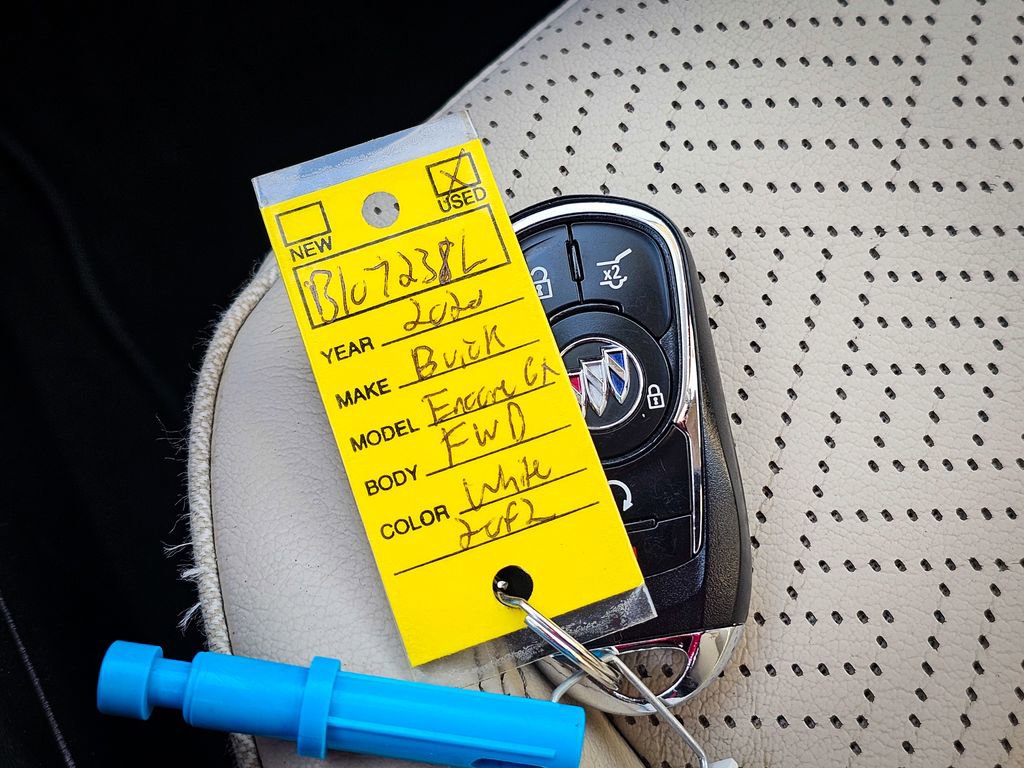 USED
NEW
B107238L
YEAR 2020
MAKE Buick
MODEL Encore GX
BODY FWD
COLOR White
2 of 2
x2